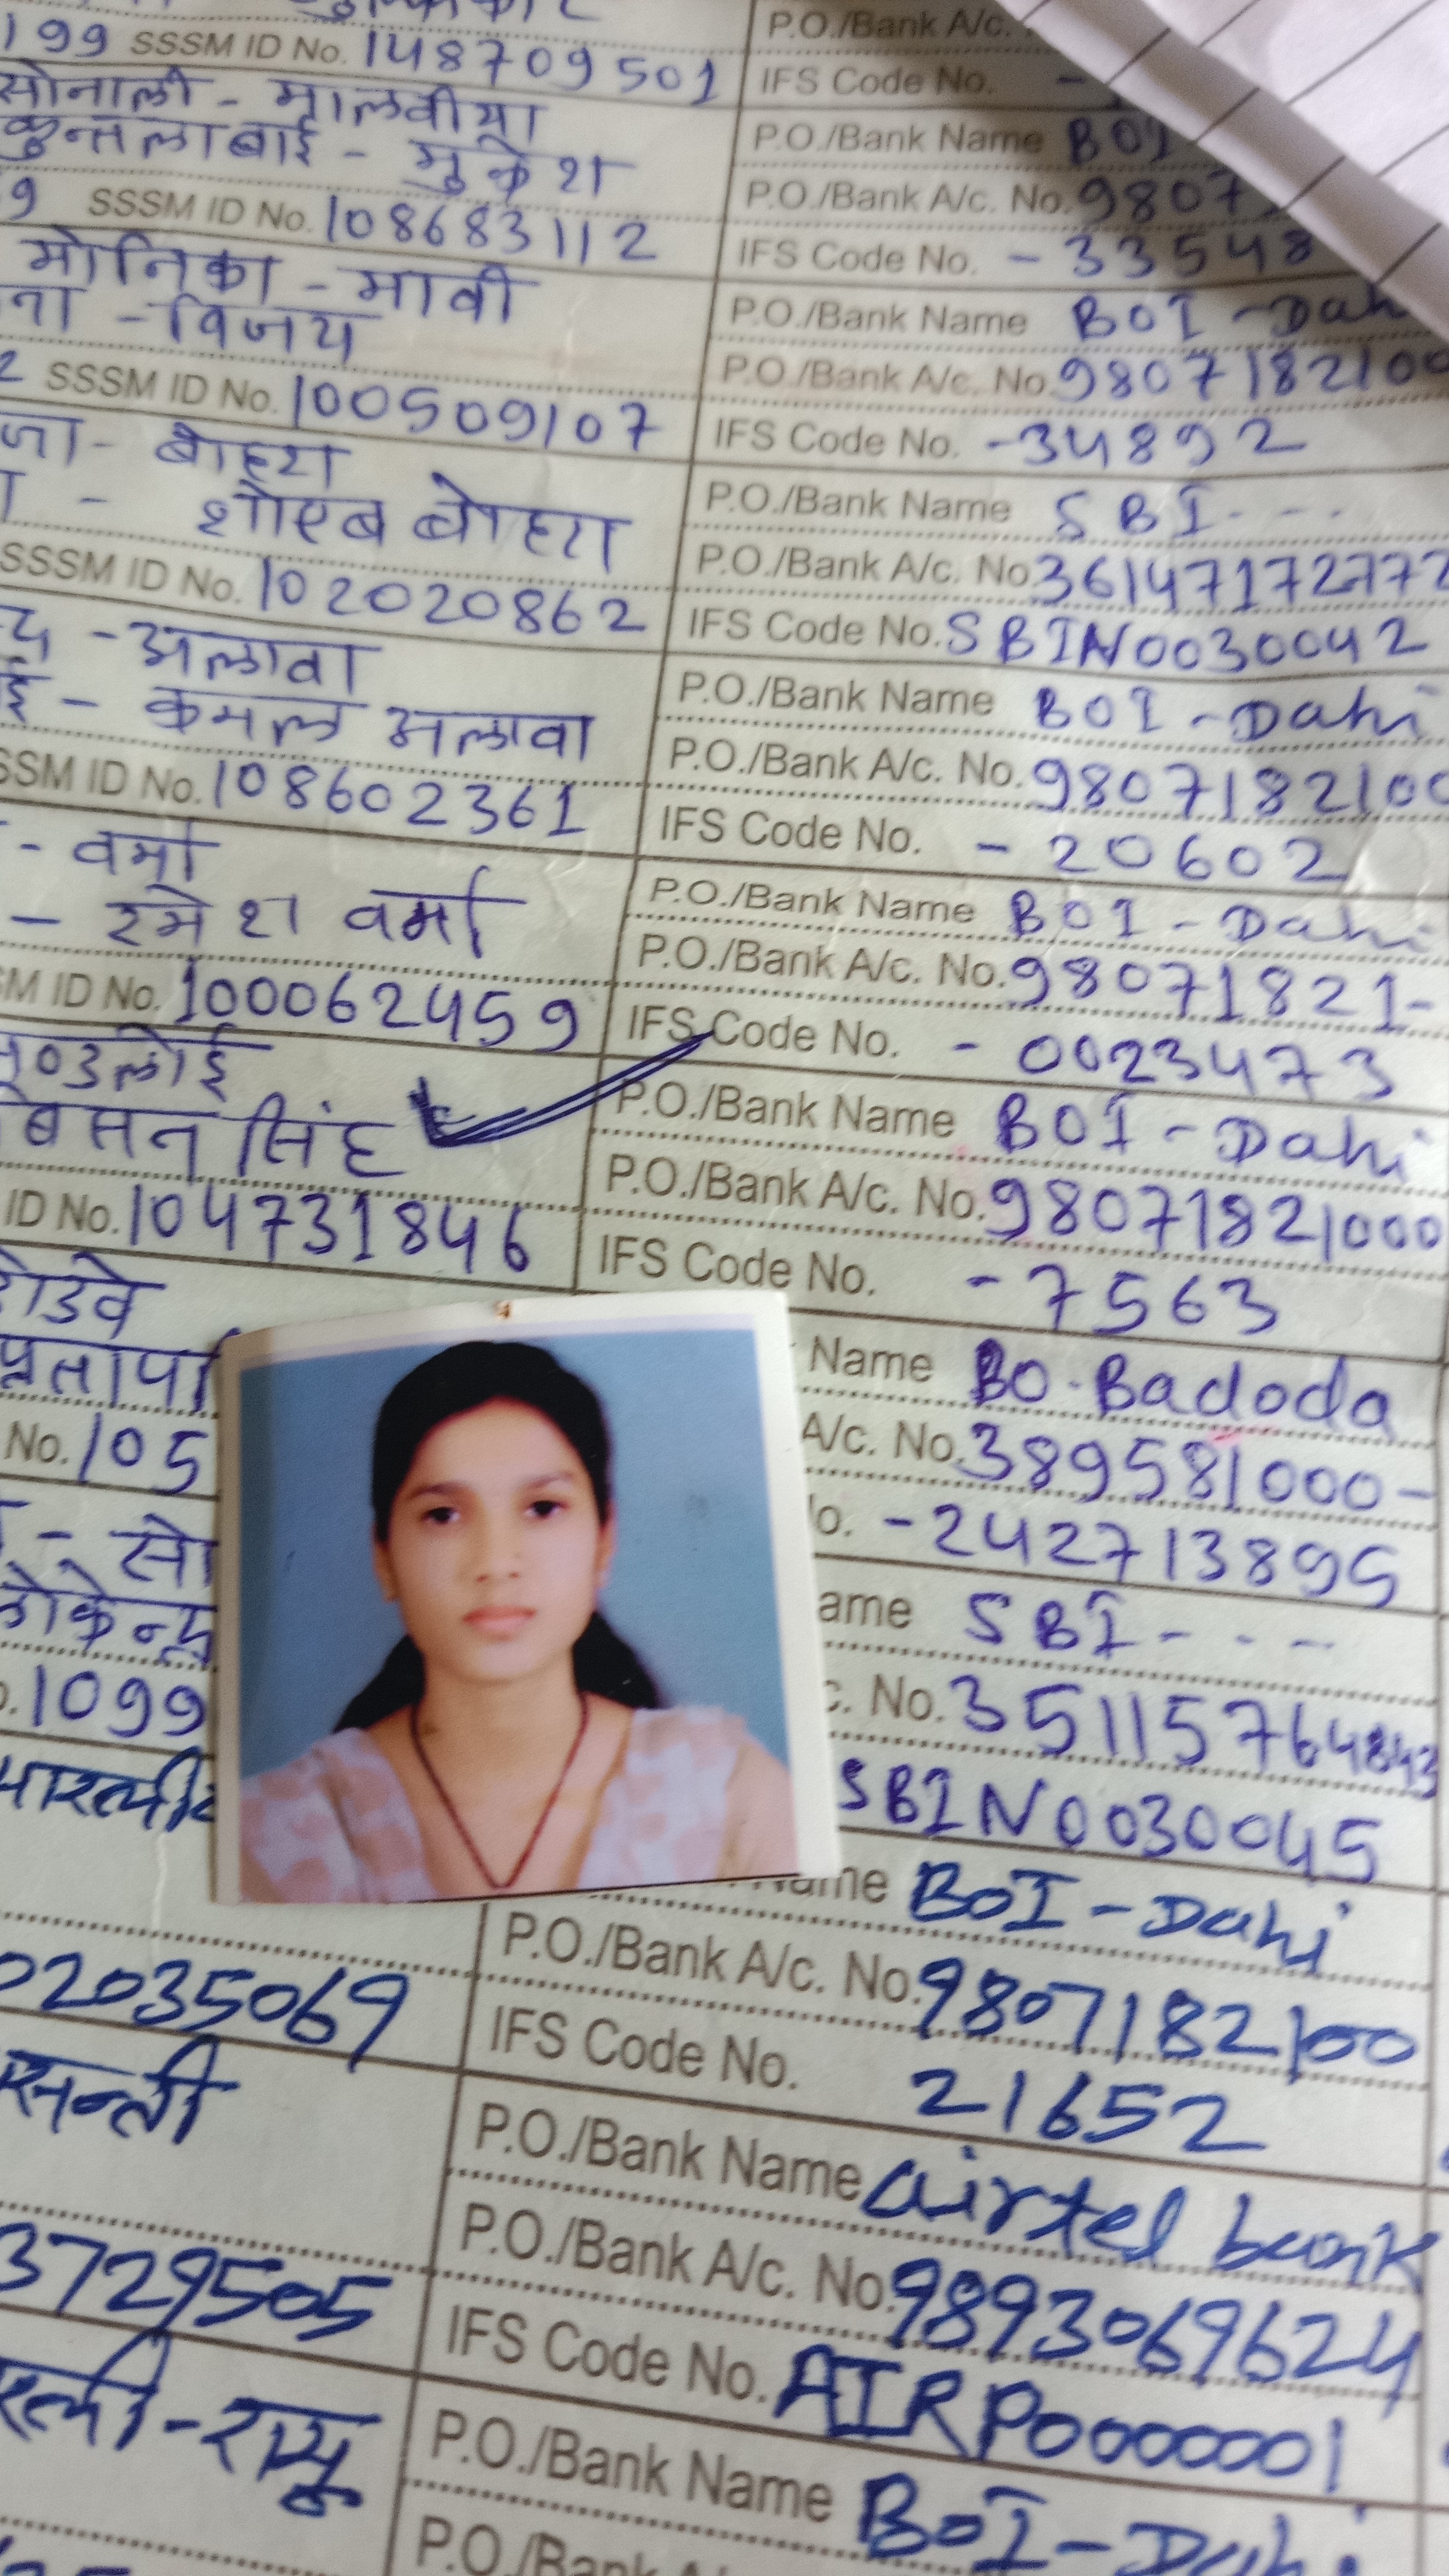 199 SSSM ID No. 148709501
P.O./Bank A/c.
IFS Code No. -
सोनाली - मालवीया
कुन्तलाबाई - मुकेश
9 SSSM ID No. 108683112
P.O./Bank Name BOI
P.O./Bank A/c. No. 9807
IFS Code No. - 33548
मोनिका - मावी
- विजय
2 SSSM ID No. 100509107
P.O./Bank Name BOI - Dah
P.O./Bank A/c. No. 9807182100
IFS Code No. - 34892
जा - बोहरा
- शोएब बोहरा
SSSM ID No. 102020862
P.O./Bank Name SBI - - -
P.O./Bank A/c. No. 36147172772
IFS Code No. SBIN0030042
- अलावा
ई - कमल अलावा
SSM ID No. 108602361
P.O./Bank Name BOI - Dahi
P.O./Bank A/c. No. 9807182100
IFS Code No. - 20602
- वर्मा
- रमेश वर्मा
SM ID No. 100062459
P.O./Bank Name BOI - Dahi
P.O./Bank A/c. No. 98071821-
IFS Code No. - 0023473
मण्डलोई
बिसन सिंह
ID No. 104731846
P.O./Bank Name BOI - Dahi
P.O./Bank A/c. No. 98071821000
IFS Code No. - 7563
डोडवे
प्रताप
No. 105
Name BO. Badoda
A/c. No. 389581000-
o. - 242713895
- सो
लोकेन्द्र
. 1099
ame SBI - - -
c. No. 35115764843
SBIN0030045
02035069
Name BOI - Dahi
P.O./Bank A/c. No. 9807182100
IFS Code No. 21652
सन्ती
3729505
P.O./Bank Name airtel bank
P.O./Bank A/c. No. 9893069624
IFS Code No. AIRP0000001
- रामू
P.O./Bank Name BOI - Dahi
P.O./Bank A/